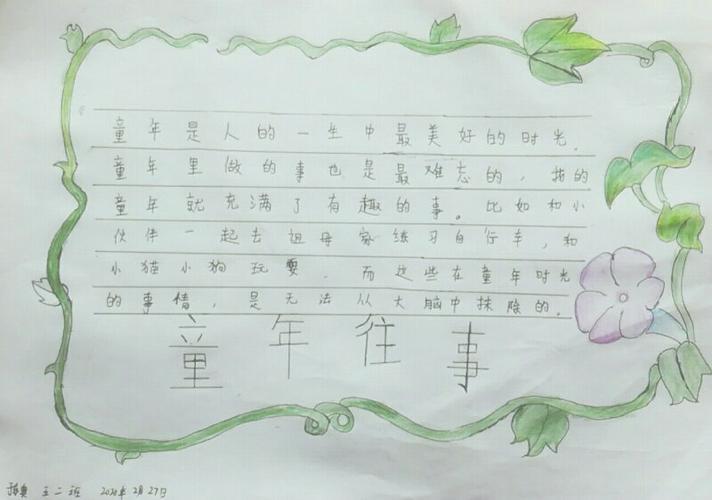 童年是人的一生中最美好的时光。
童年里做的事也是最难忘的，我的
童年就充满了有趣的事。比如和小
伙伴一起去祖母家练习自行车，和
小猫小狗玩耍。而这些在童年时光
的事情，是无法从大脑中抹除的。
童年往事
五二班 2020年2月27日